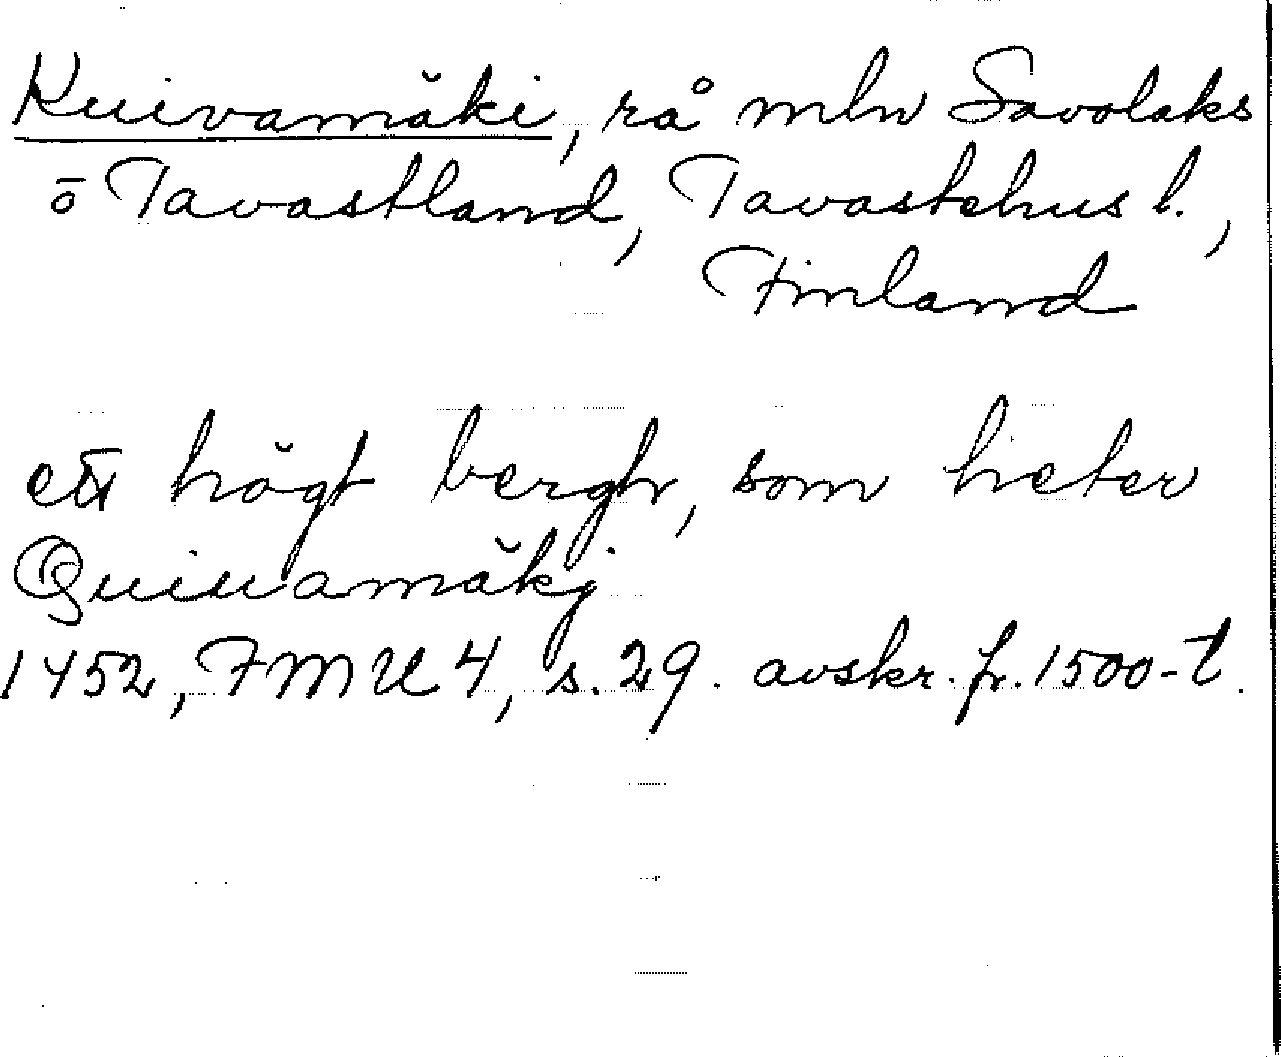 Kuivamäki, rå mln Savolaks
o Tavastland, Tavastehus l.,
Finland
ett högt bergh, som heter
Quiuamäkj
1452, FMU 4, s. 29. avskr. fr. 1500-t.